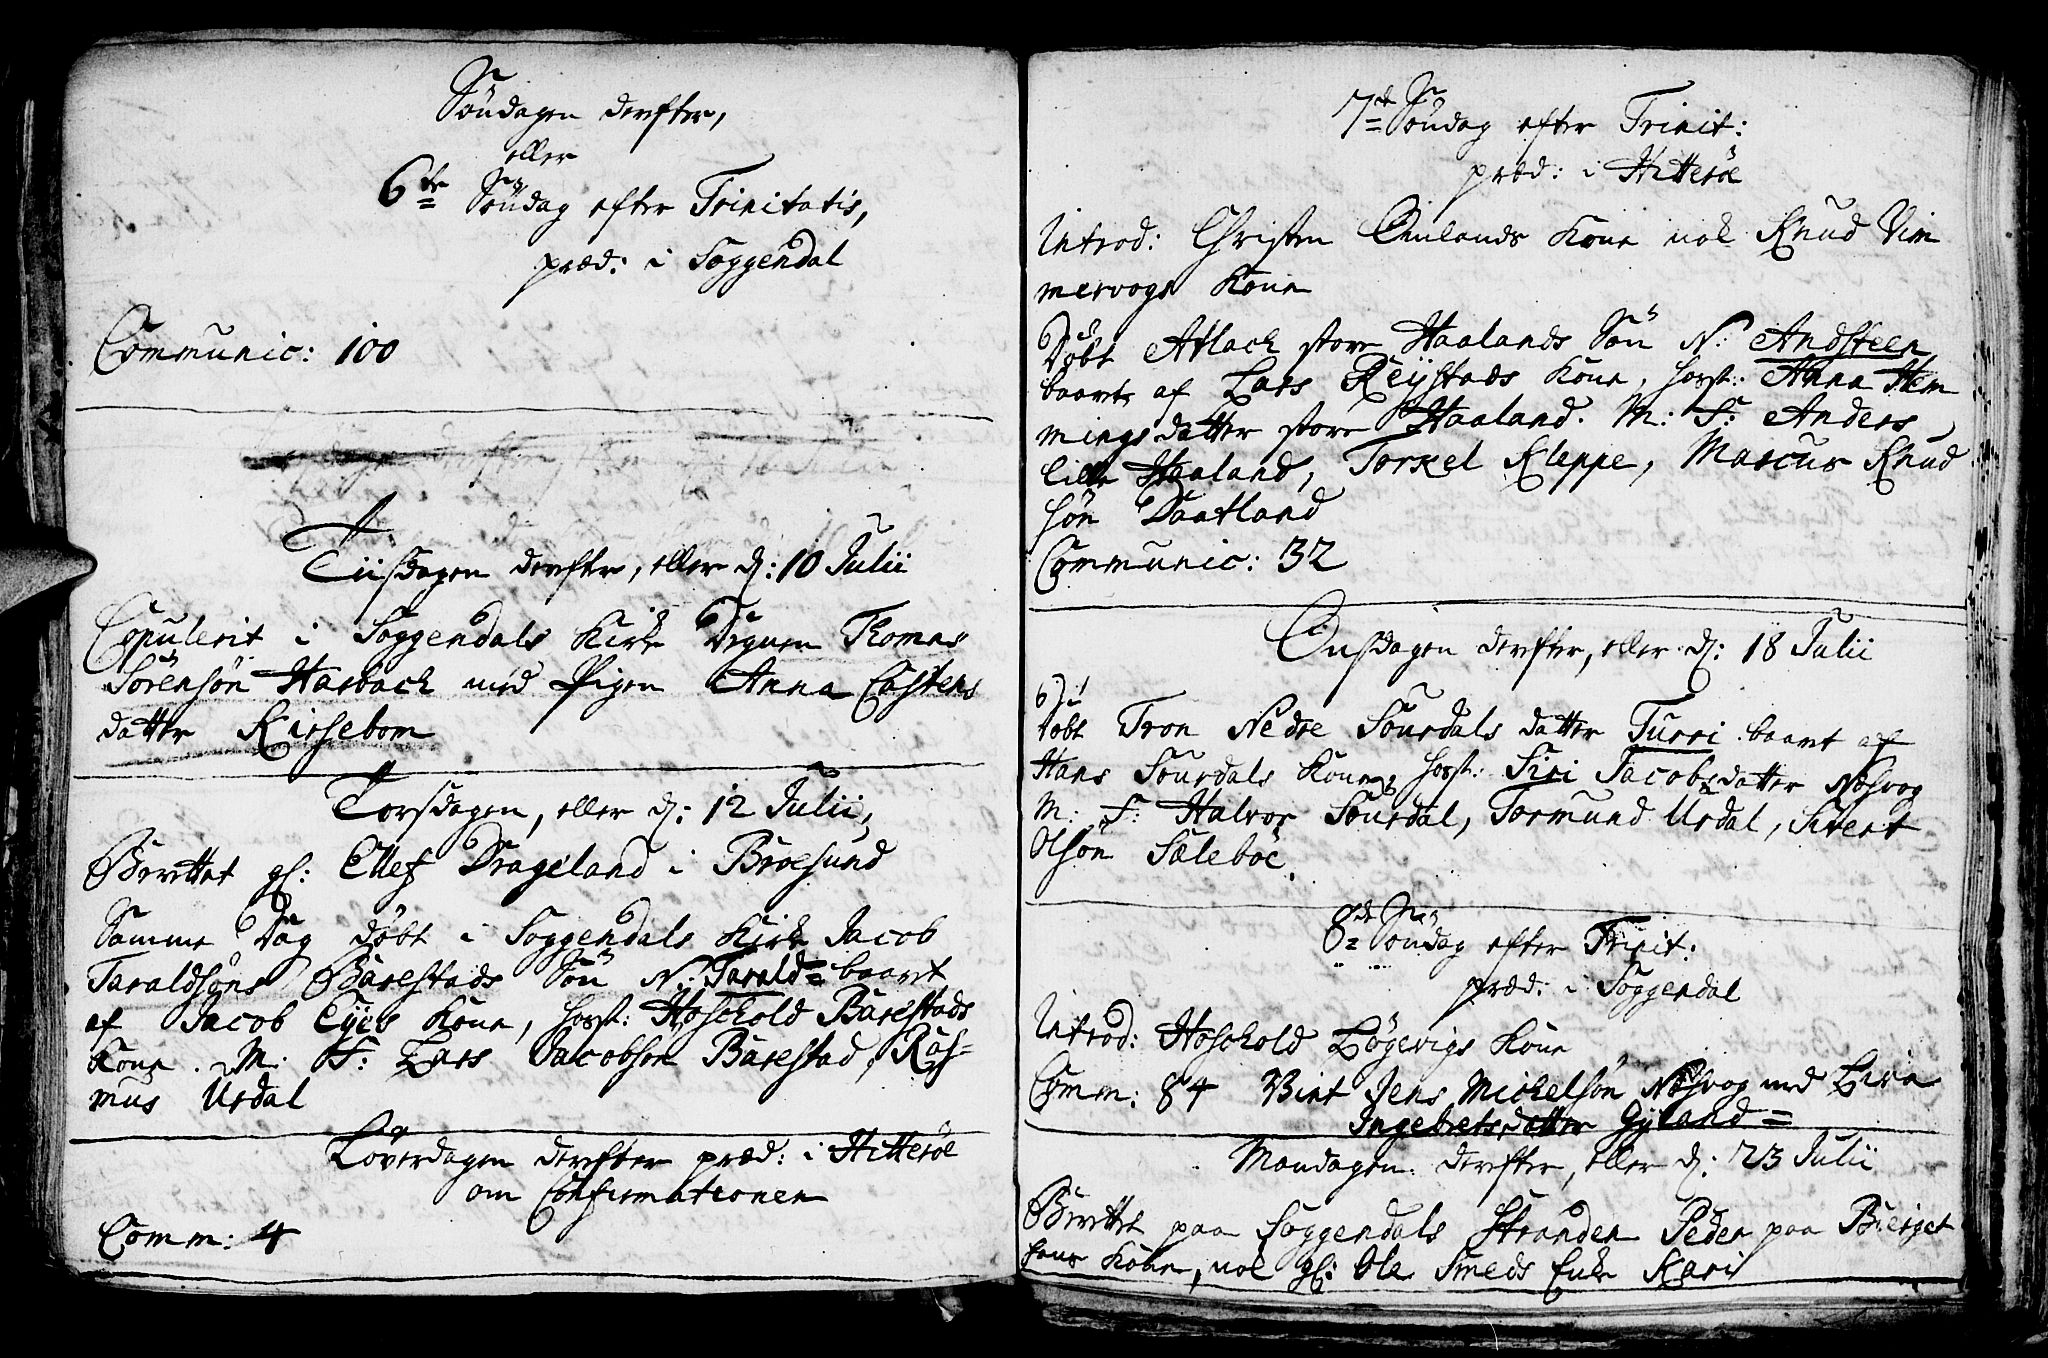 Söndagen derefter,
eller
6te Söndag efter Trinitatis,
præd: i Soggendal
Communic: 100
Tiisdagen derefter, eller d: 10 Julii
Copulerit i Soggendals Kirke Degnen Thomas
Sörensön Harbach med Pigen Anna Castens
datter Kirsebom
Torsdagen, eller d: 12 Julii,
Berettet gl: Ellef Drageland i Broesund
Samme Dag döbt i Soggendals Kirke Jacob
Taraldsöns Barestads Sön N: Tarald= baaret
af Jacob Eyes Kone, horst: Hoskold Barestads
Kone. M: F: Lars Jacobsen Barestad, Ras=
mus Urdal
Löverdagen derefter præd: i Hitteröe
om Confirmationen
Comm: 4
7de Söndag efter Trinit:
præd: i Hitteröe
Introd: Christen Omlands Kone nok Knud Vim
mervogs Kone
Döbt Atlach store Haalands Sön N: Andsteen
baaret af Lars Reijstads Kone, horst: Anna Hem
mingsdatter store Haaland. M: F: Anders
lille Haaland, Torkel Kleppe, Marcus Knud
sön Daatland
Communic: 32
Onsdagen derefter, eller d: 18 Julii
Döbt Tron Nedre Sourdals datter Turri baaret af
Hans Sourdals Kone, horst: Siri Jacobsdatter Nesvog
M: F: Halvor Sourdal, Tormund Urdal, Sivert
Olsön Sæleböe.
8de Söndag efter Trinit:
præd: i Soggendal
Introd: Hoskold Lögevigs Kone
Comm: 84 Viet Jens Michelsön Nesvog med Liva
Ingebretsdatter Gyland=
Mandagen derefter, eller d: 23 Julii
Berettet paa Soggendals Stranden Peder paa Bierget
hans Kone, nok gl: Ole Smeds Enke Kari